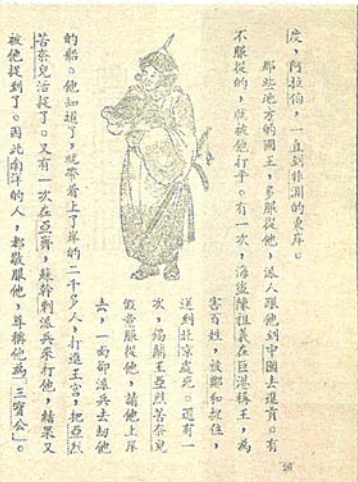 度，阿拉伯，一直到非洲的東岸。
那些地方的國王，多服從他，派人跟他到中國去進貢。有
不服從的，就被他打平。有一次，海盜陳祖義在巨港稱王，為
害百姓，被鄭和捉住，
送到北京處死。還有一
次，錫蘭王亞烈苦奈兒
假意服從他，請他上岸
去，一面卻派兵去劫他
的船。他知道了，就帶着上了岸的二千多人，打進王宮，把亞烈
苦奈兒活捉了。又有一次在亞齊，蘇幹剌派兵來打他，結果又
被他捉到了。因此南洋的人，都敬服他，尊稱他為「三寶公」。